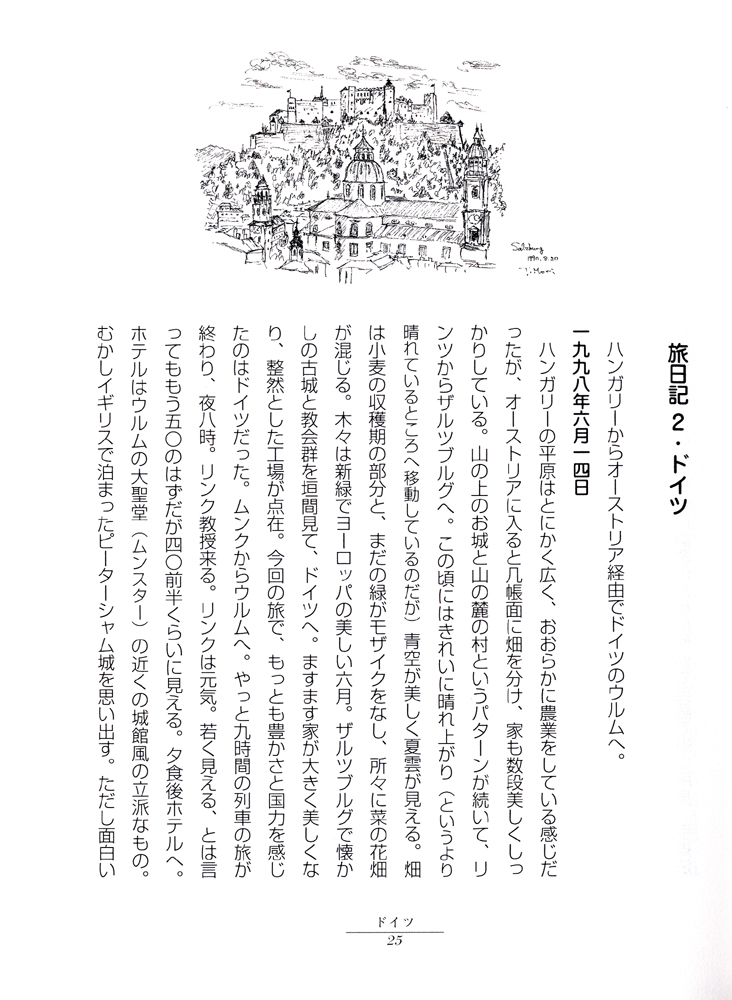 Salzburg
1990.8.20
旅日記 2・ドイツ
ハンガリーからオーストリア経由でドイツのウルムへ。
一九九八年六月一四日
ハンガリーの平原はとにかく広く、おおらかに農業をしている感じだ
ったが、オーストリアに入ると几帳面に畑を分け、家も数段美しくしっ
かりしている。山の上のお城と山の麓の村というパターンが続いて、リ
ンツからザルツブルグへ。この頃にはきれいに晴れ上がり（というより
晴れているところへ移動しているのだが）青空が美しく夏雲が見える。畑
は小麦の収穫期の部分と、まだの緑がモザイクをなし、所々に菜の花畑
が混じる。木々は新緑でヨーロッパの美しい六月。ザルツブルグで懐か
しの古城と教会群を垣間見て、ドイツへ。ますます家が大きく美しくな
り、整然とした工場が点在。今回の旅で、もっとも豊かさと国力を感じ
たのはドイツだった。ムンクからウルムへ。やっと九時間の列車の旅が
終わり、夜八時。リンク教授来る。リンクは元気。若く見える、とは言
ってももう五〇のはずだが四〇前半くらいに見える。夕食後ホテルへ。
ホテルはウルムの大聖堂（ムンスター）の近くの城館風の立派なもの。
むかしイギリスで泊まったピーターシャム城を思い出す。ただし面白い
ドイツ
25